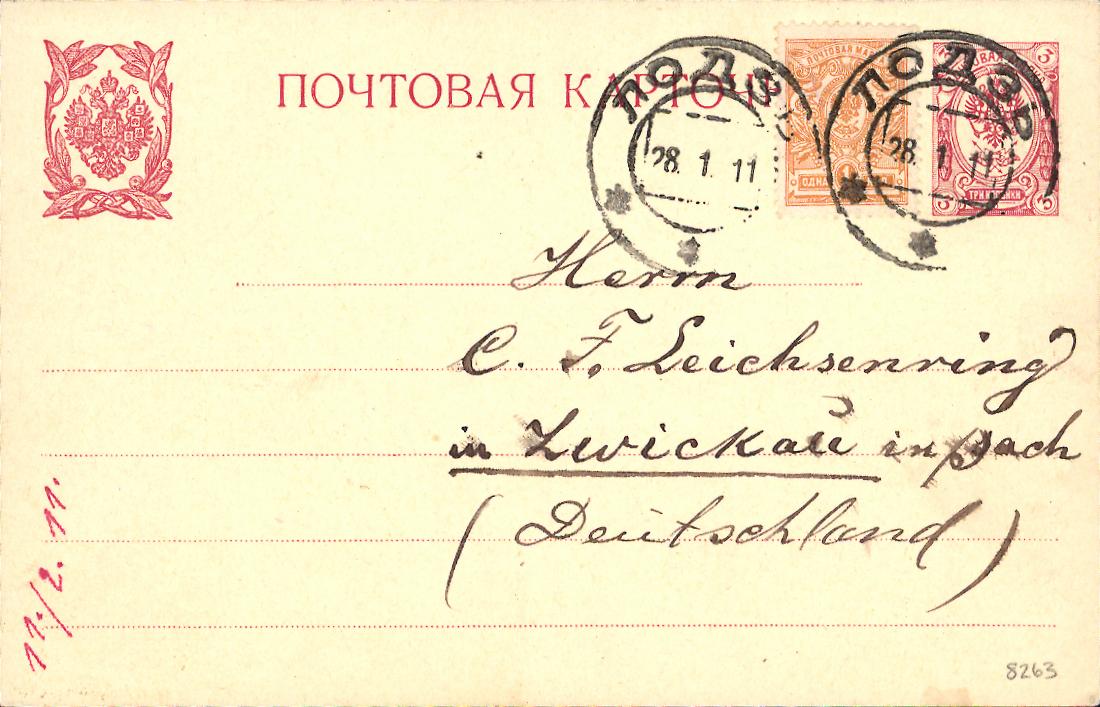 ПОЧТОВАЯ КАРТОЧ
ПОЧТОВАЯ МА
ОДНА
3
3
ТРИ
3
3
ЛОДЗЬ
28. 1. 11
ЛОДЗЬ
28. 1. 11
Herrn
C. F. Leichsenring
in Zwickau in Sach
(Deutschland)
11./2. 11.
8263